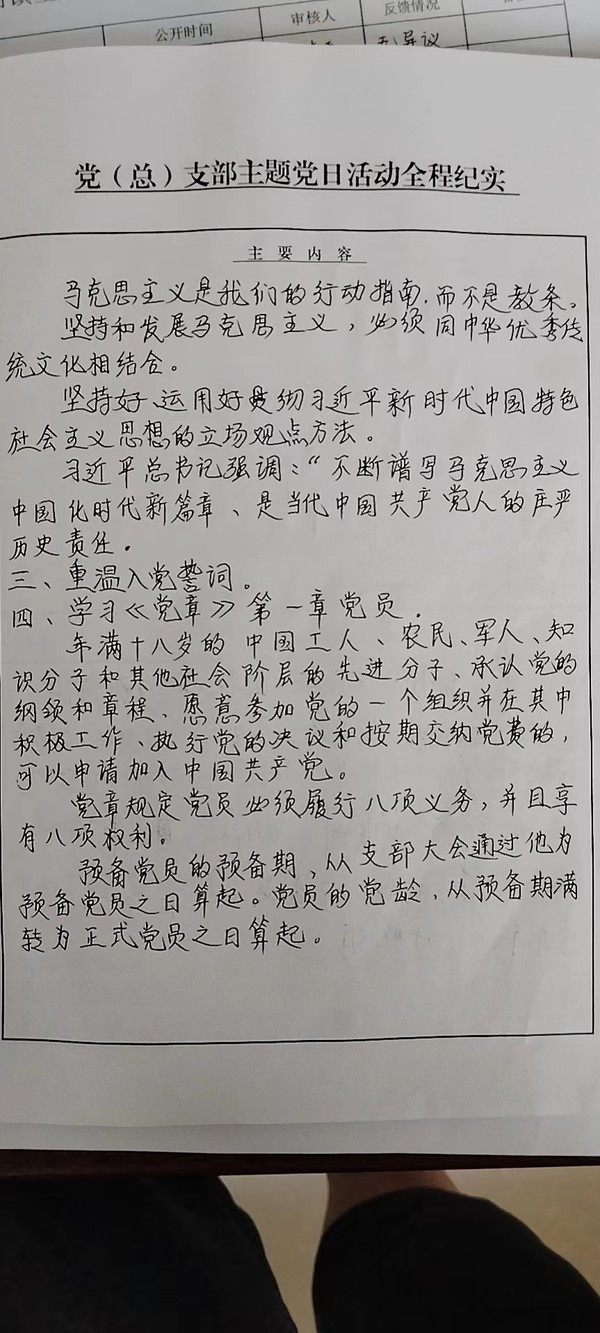 公开时间
审核人
反馈情况
党（总）支部主题党日活动全程纪实
主要内容
马克思主义是我们的行动指南，而不是教条。
坚持和发展马克思主义，必须同中华优秀传
统文化相结合。
坚持好、运用好贯彻习近平新时代中国特色
社会主义思想的立场观点方法。
习近平总书记强调：“不断谱写马克思主义
中国化时代新篇章、是当代中国共产党人的庄严
历史责任。
三、重温入党誓词。
四、学习《党章》第一章党员．
年满十八岁的中国工人、农民、军人、知
识分子和其他社会阶层的先进分子、承认党的
纲领和章程、愿意参加党的一个组织并在其中
积极工作、执行党的决议和按期交纳党费的，
可以申请加入中国共产党。
党章规定党员必须履行八项义务，并且享
有八项权利。
预备党员的预备期，从支部大会通过他为
预备党员之日算起。党员的党龄，从预备期满
转为正式党员之日算起。